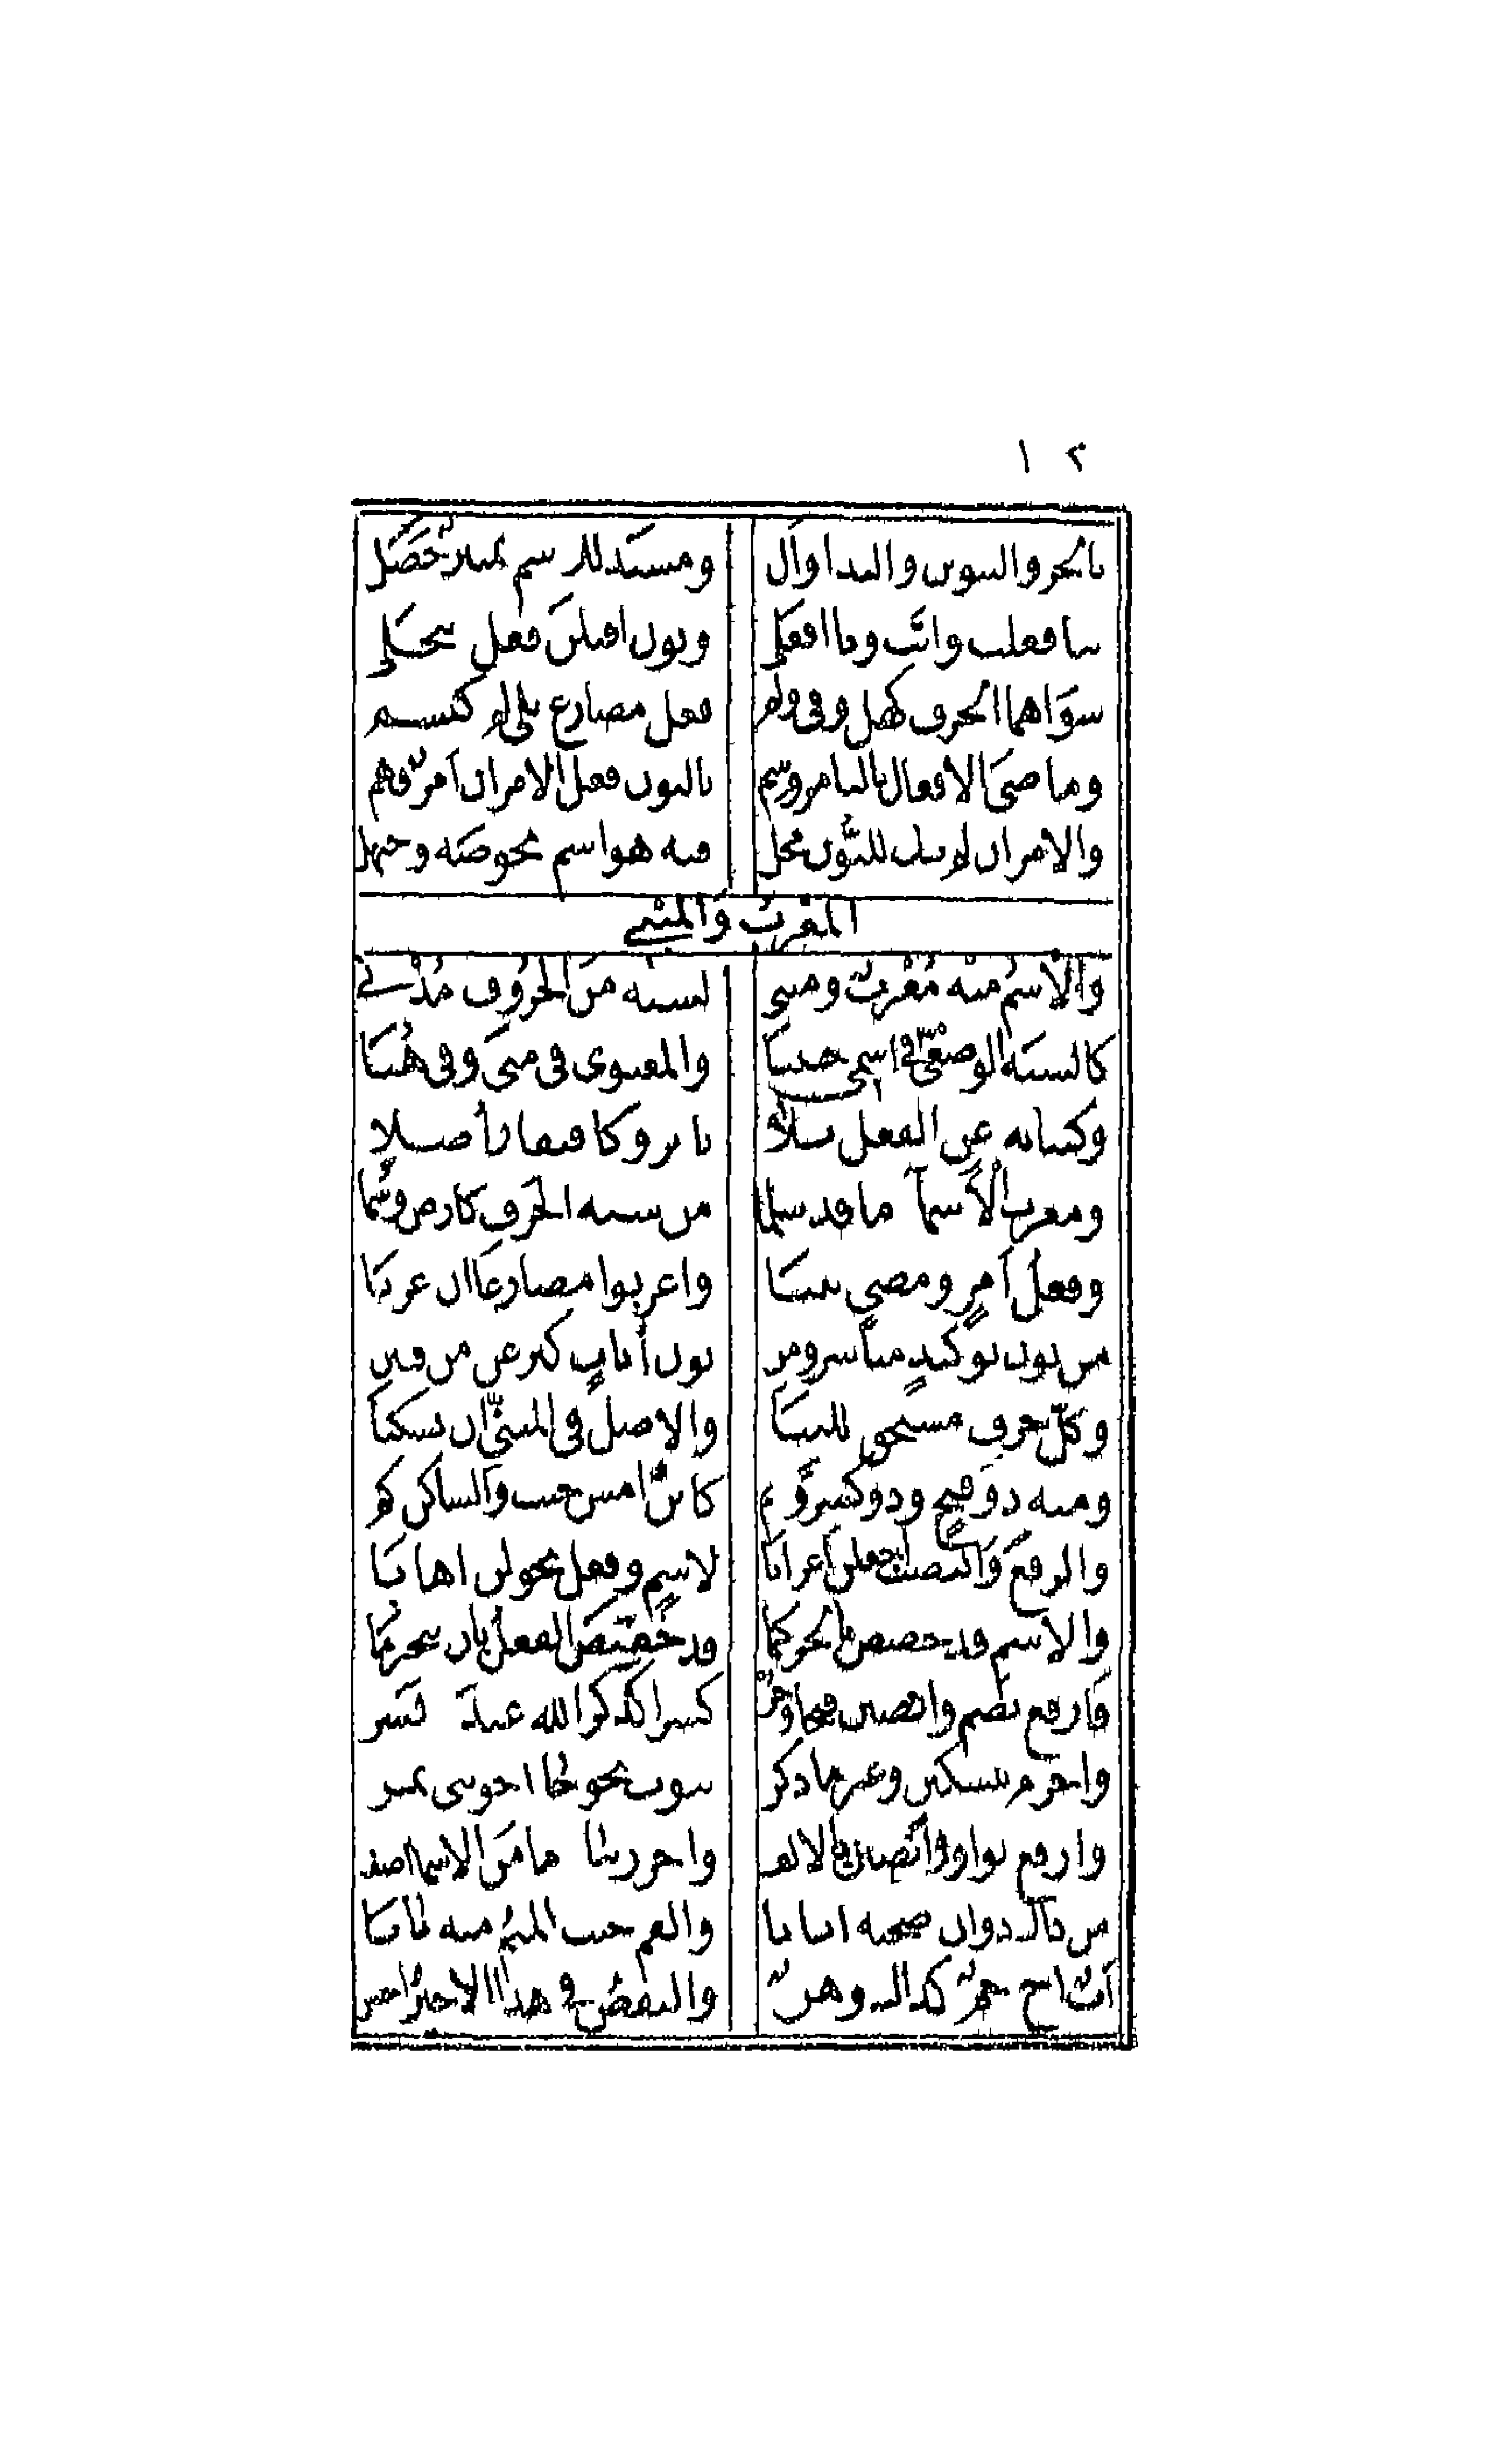 ١٢
بالجر والتنوين والندا وال ومسند للاسم تمييز حصل
بتا فعلت واتت ويا افعلي ونون اقبلن فعل ينجلي
سواهما الحرف كهل وفي ولم فعل مضارع يلي لم كيشم
وماضي الافعال بالتا مز وسم بالنون فعل الامر ان امر فهم
والامر ان لم يك للنون محل فيه هو اسم نحو صه وحيهل
المعرب والمبني
والاسم منه معرب ومبني لشبه من الحروف مدني
كالشبه الوضعي في اسمي جئتنا والمعنوي في متى وفي هنا
وكنيابه عن الفعل بلا تاثر وكافتقار أصلا
ومعرب الأسمآ ما قد سلما من شبه الحرف كارض وسما
وفعل أمر ومضي بنيا واعربوا مضارعا ان عريا
من نون توكيد مباشر ومن نون أناث كيرعن من فتن
وكل حرف مستحق للبنا والاصل في المبني ان يسكنا
ومنه ذو فتح وذو كسر وضم كاين امس حيث والساكن كم
والرفع والنصب اجعلن اعرابا لاسم وفعل نحو لن اهابا
والاسم قد خصص بالجر كما قد خصص الفعل بان ينجزما
فارفع بضم وانصبن فتحا وجر كسرا كذكر الله عبده يسر
واجزم بتسكين وغير ما ذكر ينوب نحو جا اخو بني نمر
وارفع بواو وانصبن بالالف واجرر بيا ما من الاسما اصف
من ذاك ذو ان صحبه ابانا والفم حيث الميم منه بانا
أب اخ حم كذاك وهن والنقص في هذا الاخير احسن